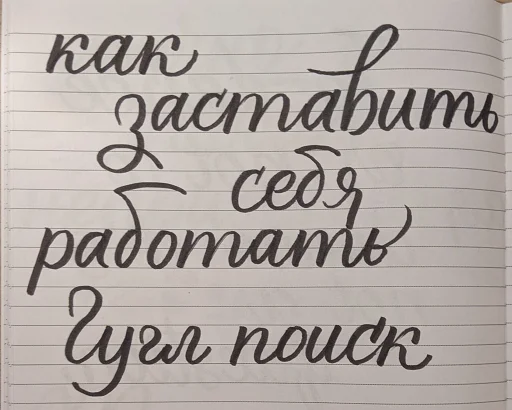 как
заставить
себя
работать
Гугл поиск